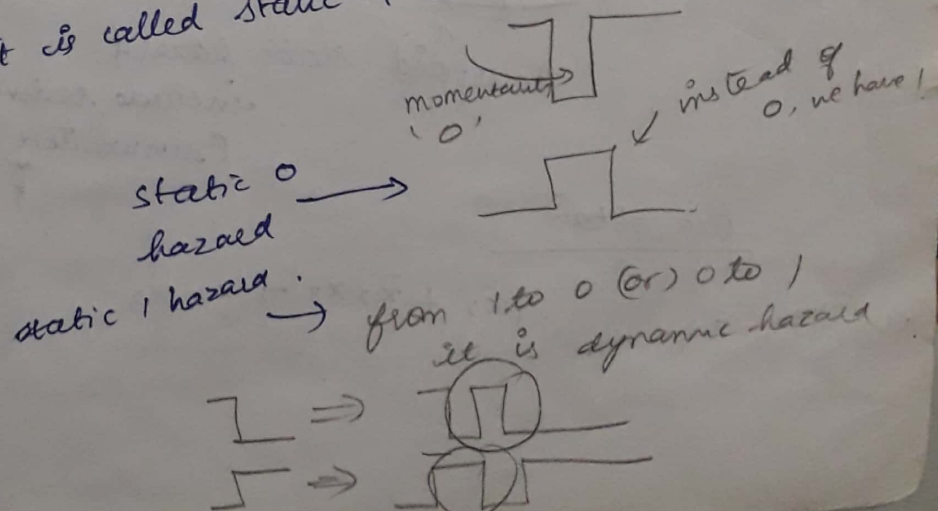 t is called static
momentarily
'0'
instead of
0, we have 1
static 0
hazard
static 1 hazard.
from 1 to 0 (or) 0 to 1
it is dynamic hazard